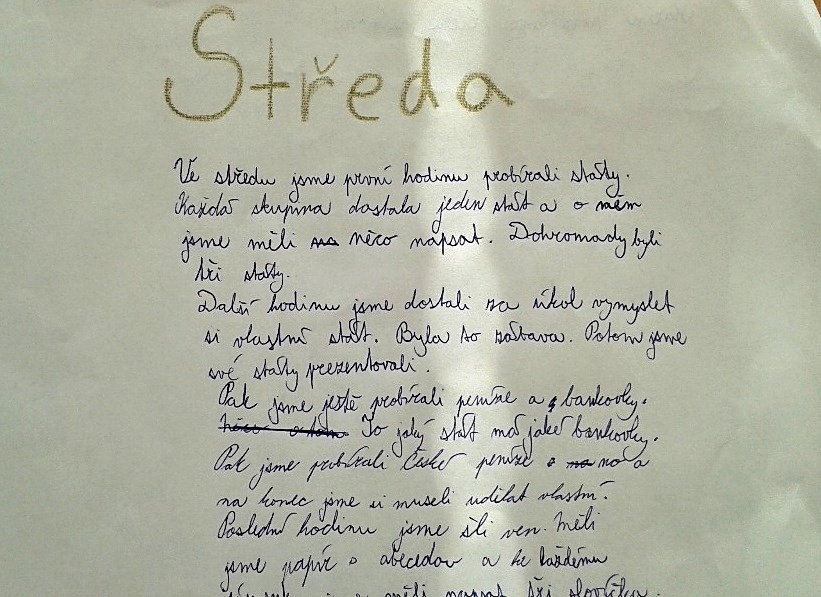 Středa
Ve středu jsme první hodinu probírali státy.
Každá skupina dostala jeden stát a o něm
jsme měli něco napsat. Dohromady byli
tři státy.
Další hodinu jsme dostali za úkol vymyslet
si vlastní stát. Byla to zábava. Potom jsme
své státy prezentovali.
Pak jsme ještě probírali peníze a bankovky.
To jaký stát má jaké bankovky.
Pak jsme probírali České peníze no a
na konec jsme si museli udělat vlastní.
Poslední hodinu jsme šli ven. Měli
jsme papír s abecedou a ke každému
měli napsat tři slovíčka.